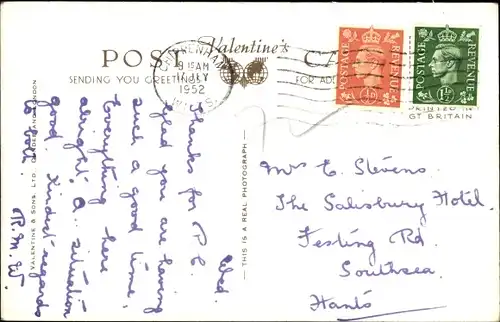 POST Valentine's CA
SENDING YOU GREETINGS FOR AD
CHIPPENHAM
9 15 AM
17 JLY
1952
WILTS
POSTAGE REVENUE
½D
POSTAGE REVENUE
1½D
PRINTED IN
GT BRITAIN
VALENTINE & SONS, LTD. DUNDEE AND LONDON
THIS IS A REAL PHOTOGRAPH
Wed.
Thanks for P.C.
glad you are having
such a good time,
Everything here
alright & situation
good. Kindest regards
to both.
R.M.W.
Mrs E. Stevens.
The Salisbury Hotel.
Festing Rd.
Southsea.
Hants